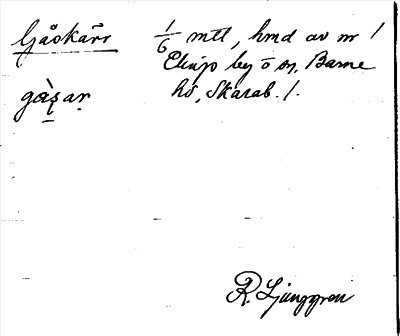 Gåskärr 1/6 mtl, hmd av nr 1
by ö sn, Barne
hd, Skarab. l.
R. Ljunggren